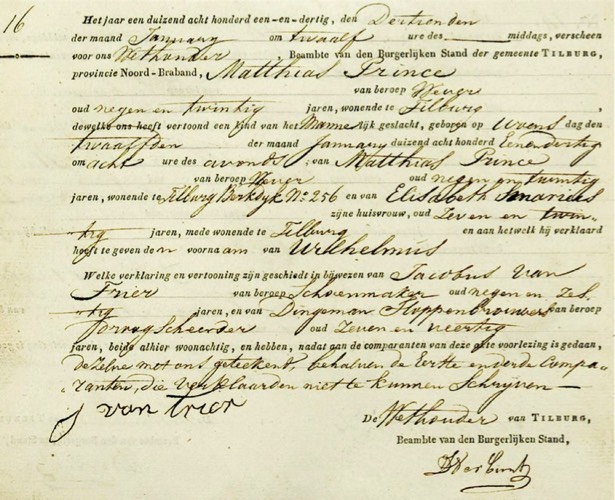 16
Het jaar een duizend acht honderd een-en-dertig, den Dertienden
der maand January om twaalf ure des middags, verscheen
voor ons Wethouder Beambte van den Burgerlijken Stand der gemeente TILBURG,
provincie Noord-Braband, Matthias Prince
van beroep Wever
oud negen en twintig jaren, wonende te Tilburg
dewelke ons heeft vertoond een kind van het Mannelijk geslacht, geboren op Woensdag den
twaalfden der maand January duizend acht honderd Eenendertig
om acht ure des avonds van Matthias Prince
van beroep Wever oud negen en twintig
jaren, wonende te Tilburg Berkdyk No 256 en van Elisabeth
zijne huisvrouw, oud Zeven en twin-
tig jaren, mede wonende te Tilburg en aan hetwelk hij verklaard
heeft te geven den voornaam van Wilhelmus
Welke verklaring en vertooning zijn geschied in bijwezen van Jacobus van
Trier van beroep Schoenmaker oud negen en Zes-
tig jaren, en van Dingeman van beroep
Scheerder oud Zeven en veertig
jaren, beide alhier woonachtig, en hebben, nadat aan de comparanten van deze acte voorlezing is gedaan,
dezelve met ons geteekent, behalven de Eerste en derde Compa-
ranten, die verklaarden niet te kunnen Schryven
J van trier
De Wethouder van TILBURG,
Beambte van den Burgerlijken Stand,